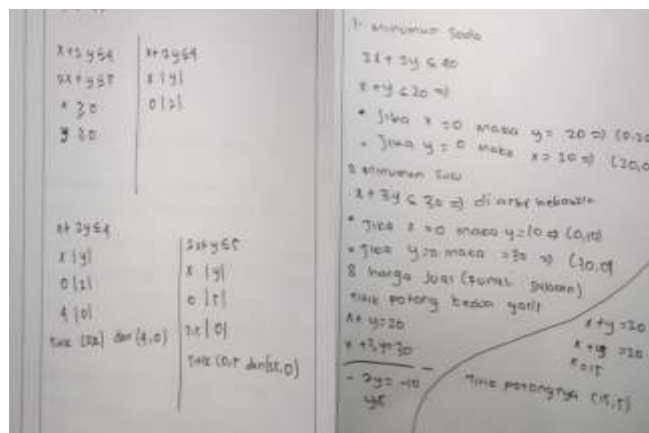 x+2y≤4
2x+y≤5
x ≥0
y ≥0
x+2y≤4
x |y|
0 |2|
x+2y≤4
x |y|
0 |2|
4 |0|
titik (0,2) dan (4,0)
2x+y≤5
x |y|
0 |5|
2.5 |0|
titik (0,5 dan
1. minuman Soda
2x + 2y ≤ 40
x + y ≤ 20 =>
• Jika x = 0 maka y = 20 => (0,20
• Jika y = 0 maka x = 20 => (20,0
2 minuman Susu
x + 3y ≤ 30 => di
• Jika x = 0 maka y = 10 => (0,10)
• Jika y = 0 maka = 30 => (30,0)
8 harga Jual
titik potong kedua garis
x + y = 20
x + 3y = 30
- 2y = -10
y=5
x + y = 20
= 20
x = 15
Titik potongnya (15,5)